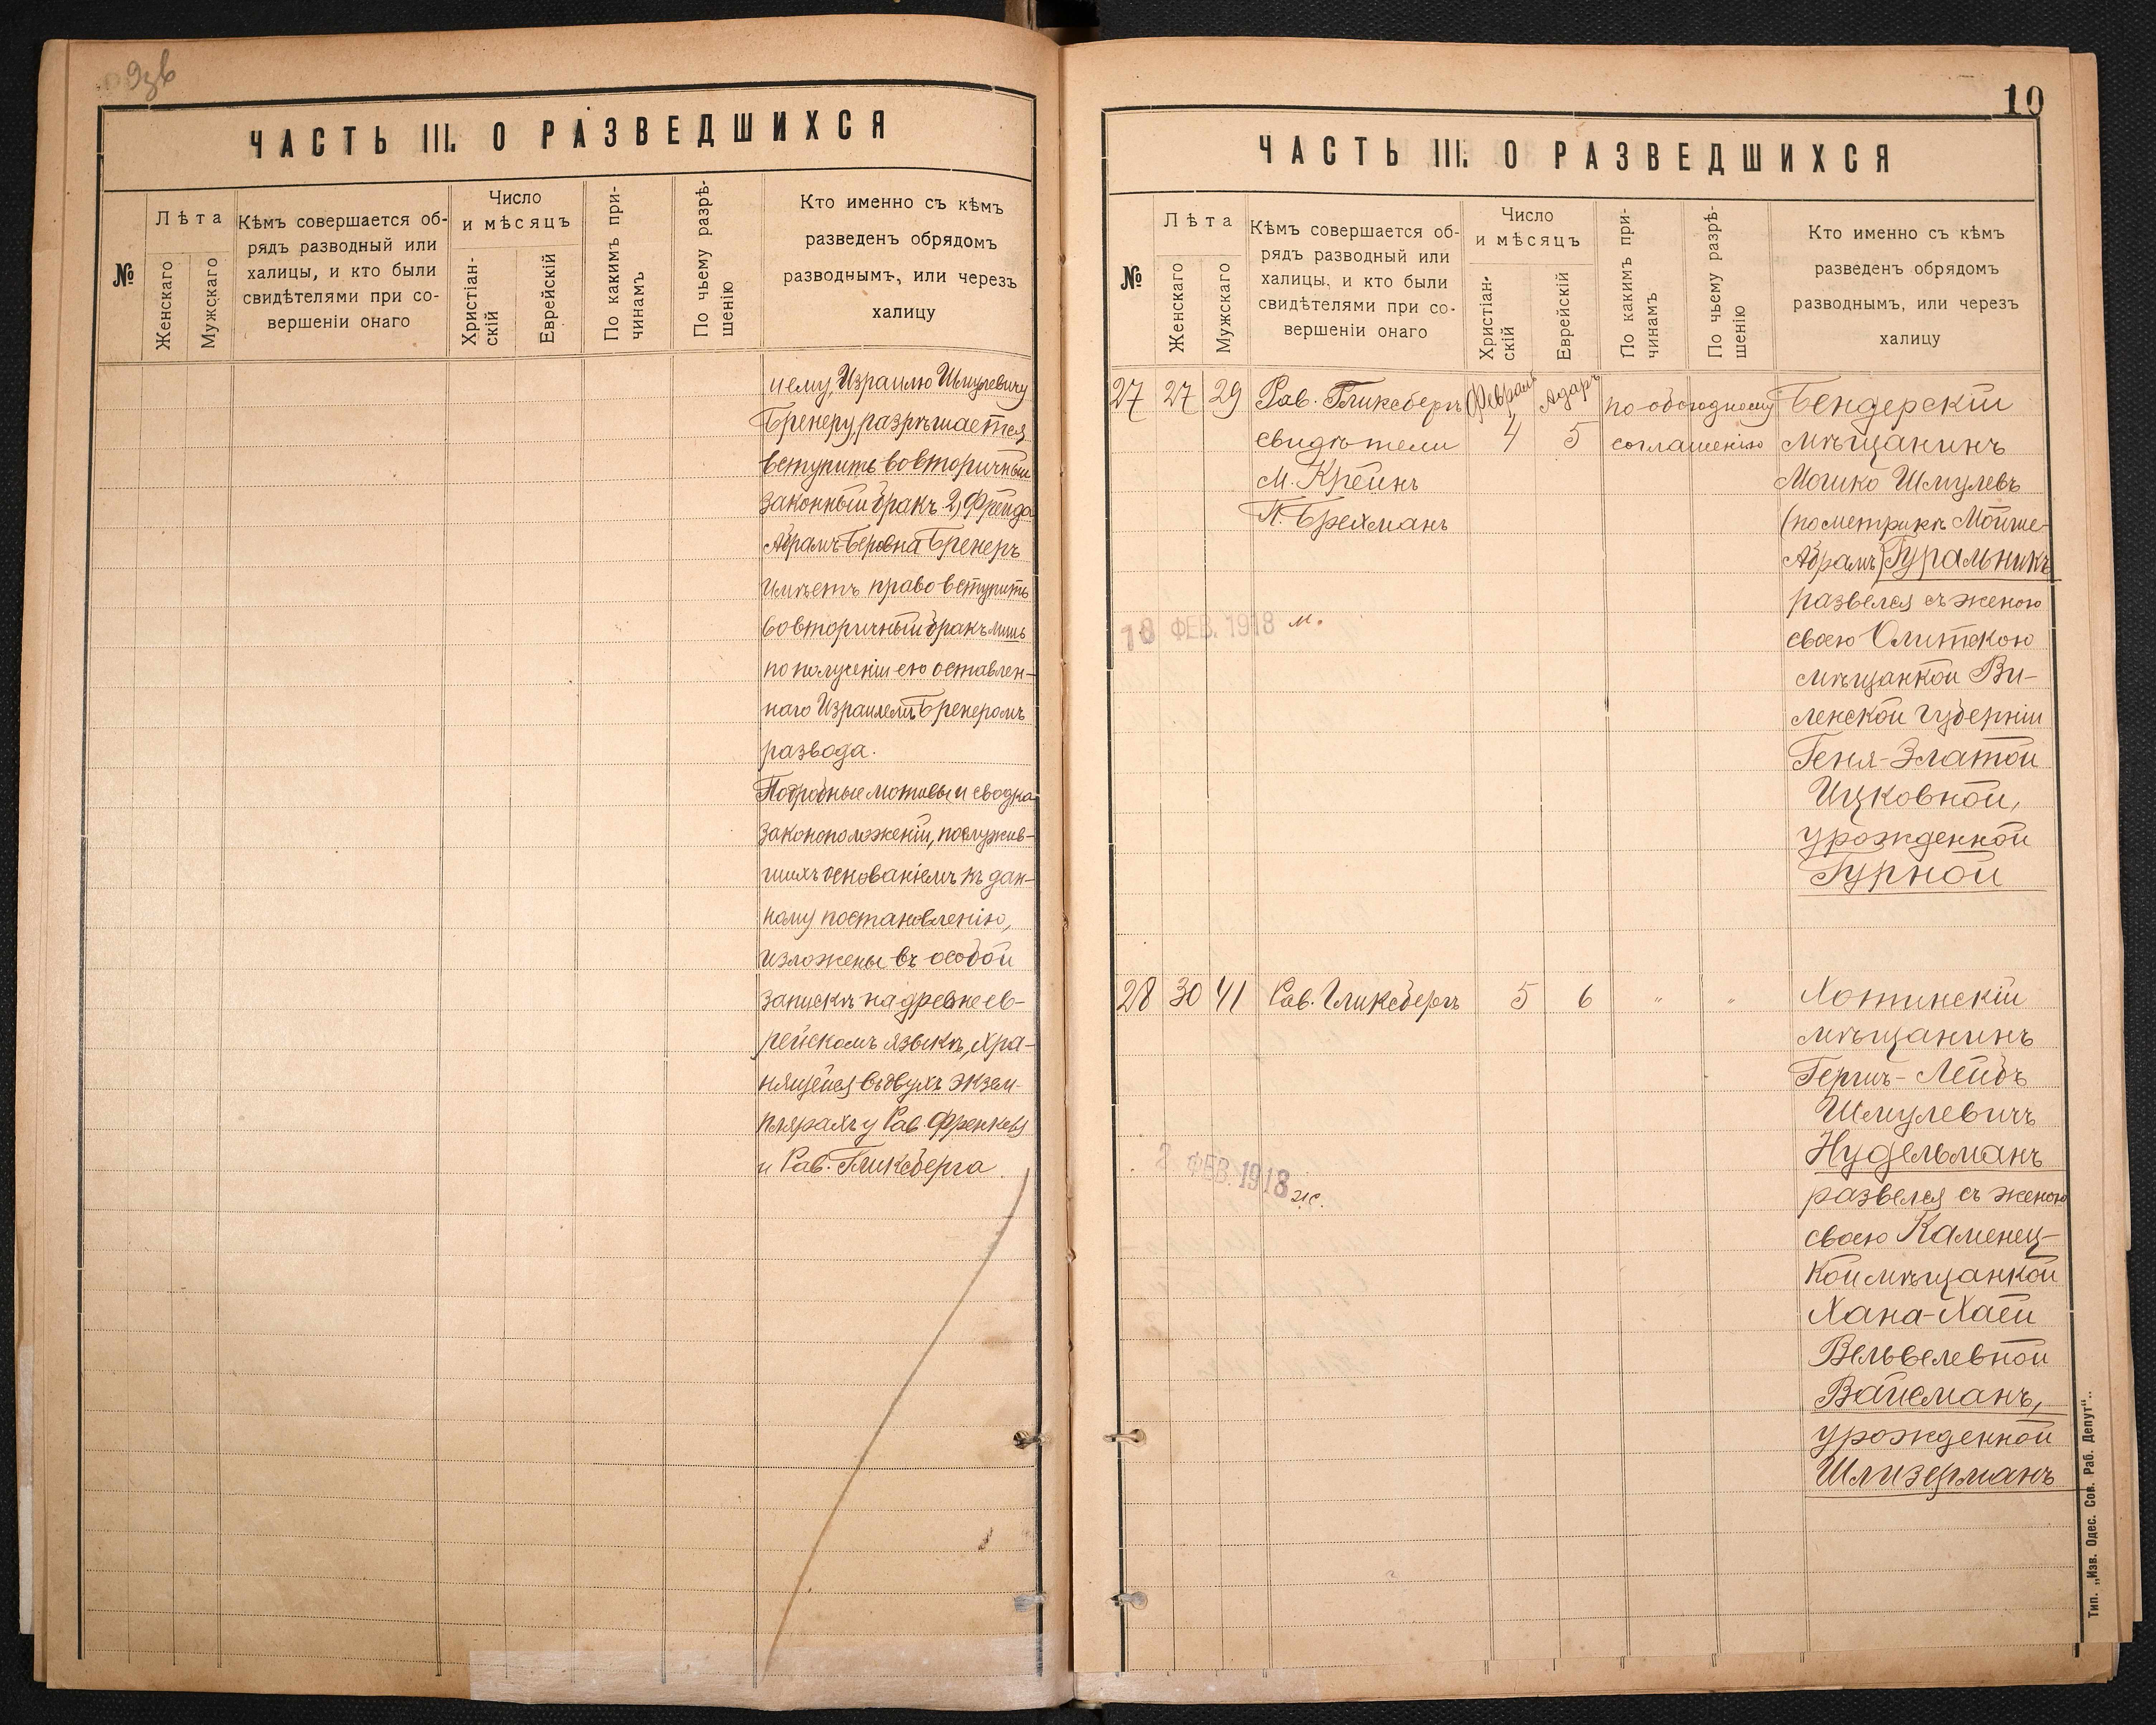 ЧАСТЬ III. О РАЗВЕДШИХСЯ
№
Лѣта
Женскаго
Мужскаго
Кѣмъ совершается об-
рядъ разводный или
халицы, и кто были
свидѣтелями при со-
вершеніи онаго
Число
и мѣсяцъ
Христіан-
скій
Еврейскій
По какимъ при-
чинамъ
По чьему разрѣ-
шенію
Кто именно съ кѣмъ
разведенъ обрядомъ
разводнымъ, или черезъ
халицу
нему, Израилю Шмулевичу
Бренеру, разрѣшается
вступить во вторичный
законный бракъ 2) Фрейда
Абрамъ-Беровна Бренеръ
имѣетъ право вступить
во вторичный бракъ лишь
по полученіи ею оставлен-
наго Израилемъ Бренеромъ
развода.
Подробные мотивы и сводка
законоположеній, послужив-
шихъ основаніемъ къ дан-
ному постановленію,
изложены въ особой
запискѣ на древнеев-
рейскомъ языкѣ, хра-
нящейся въ двухъ экзем-
плярахъ у Рав. Френкеля
и Рав. Гликсберга
10
ЧАСТЬ III. О РАЗВЕДШИХСЯ
№
Лѣта
Женскаго
Мужскаго
Кѣмъ совершается об-
рядъ разводный или
халицы, и кто были
свидѣтелями при со-
вершеніи онаго
Число
и мѣсяцъ
Христіан-
скій
Еврейскій
По какимъ при-
чинамъ
По чьему разрѣ-
шенію
Кто именно съ кѣмъ
разведенъ обрядомъ
разводнымъ, или черезъ
халицу
27 27 29 Рав. Гликсбергъ Февраль Адаръ по обоюдному Бендерскій
свидѣтели 4 5 соглашенію мѣщанинъ
М. Крейнъ Мошко Шмулевъ
П. Брехманъ (по метрикѣ Мойше-
Абрамъ) Гуральникъ
развелся съ женою
ФЕВ. 1918 м.
своею Олитскою
мѣщанкой Ви-
ленской губерніи
Геня-Златой
Ицковной,
урожденной
Гурной
28 30 41 Рав. Гликсбергъ 5 6 " " Хотинскій
мѣщанинъ
Гершъ-Лейбъ
Шмулевичъ
Нудельманъ
2 ФЕВ. 1918 ж.
развелся съ женою
своею Каменец-
кой мѣщанкой
Хана-Хаей
Вельвелевной
Вайсманъ,
урожденной
Шлизерманъ
Тип. „Изв. Одес. Сов. Раб. Депут"..